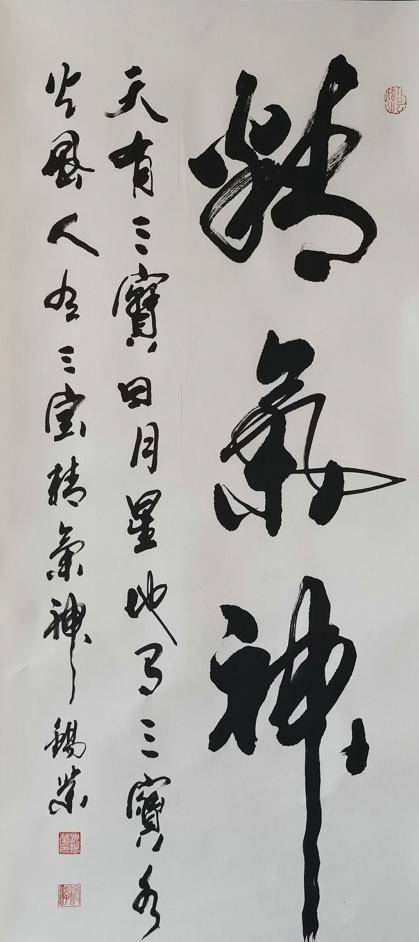 精氣神
天有三寶日月星地有三寶水
火風人有三宝精氣神